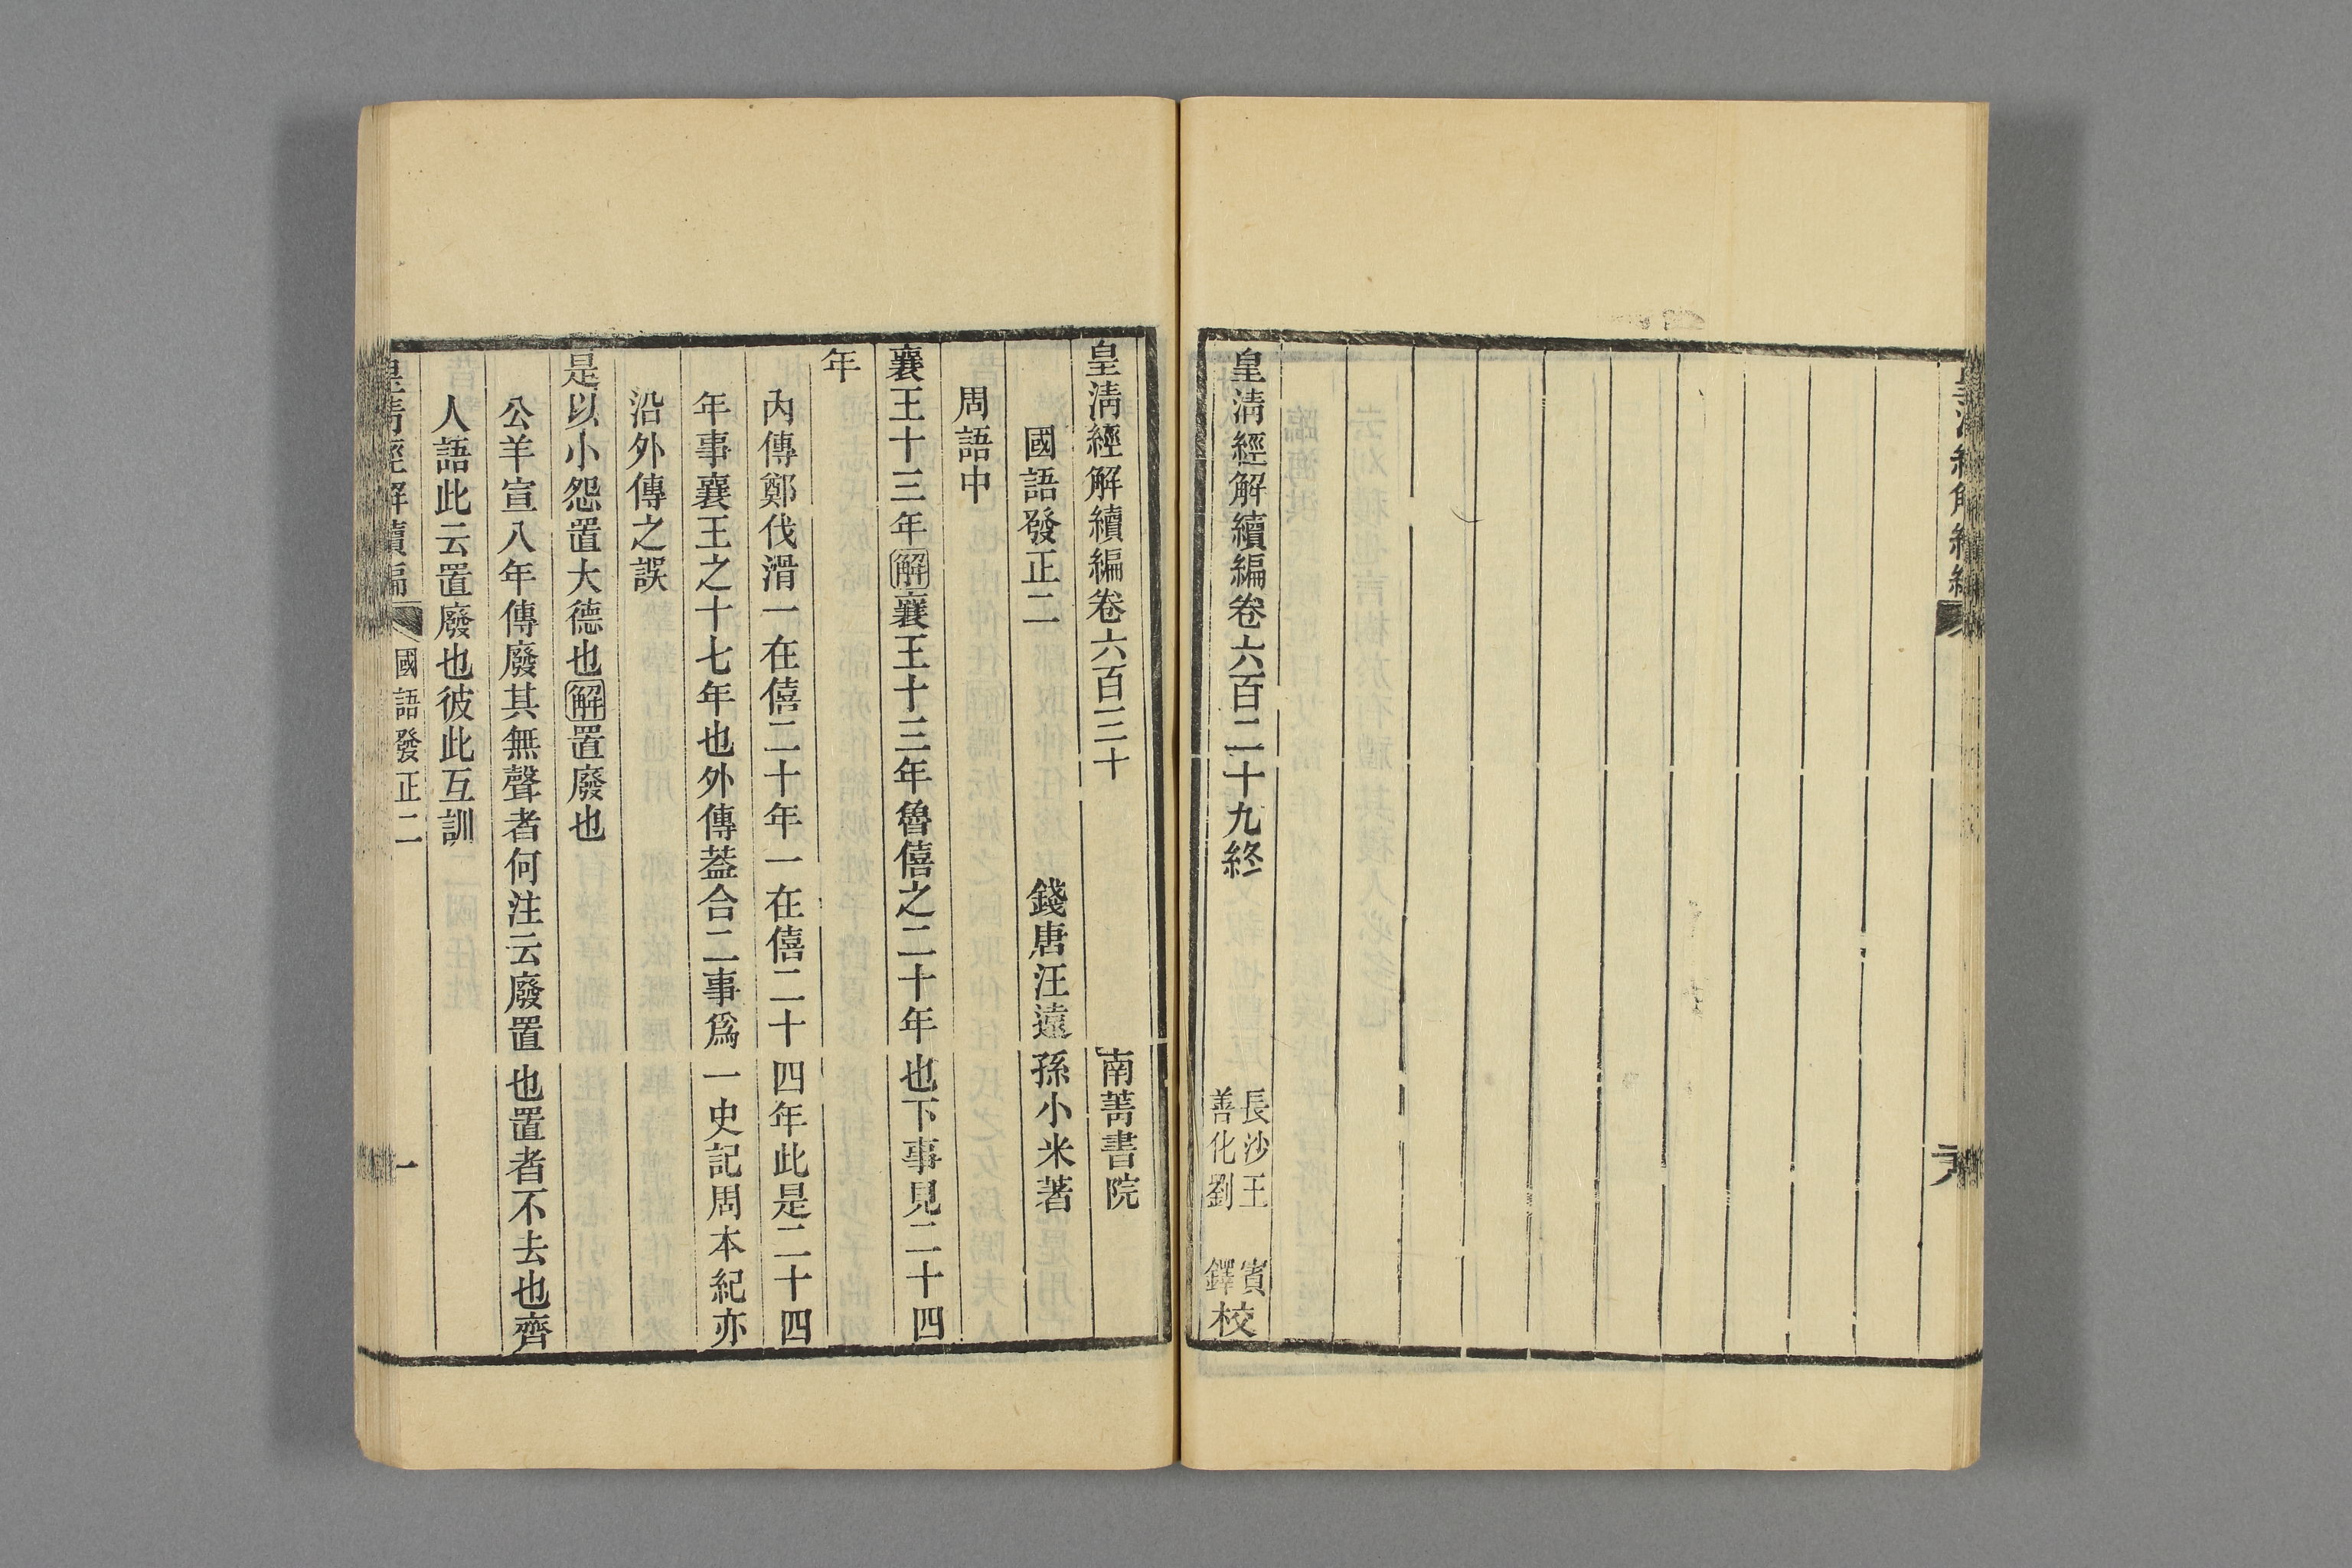 皇清經解續編卷六百二十九終
長沙王 賓
善化劉 鐸
校
皇清經解續編卷六百三十
南菁書院
國語發正二
錢唐汪遠孫小米著
周語中
襄王十三年解襄王十三年魯僖之二十年也下事見二十四
年
內傳鄭伐滑一在僖二十年一在僖二十四年此是二十四
年事襄王之十七年也外傳葢合二事爲一史記周本紀亦
沿外傳之誤
是以小怨置大德也解置廢也
公羊宣八年傳廢其無聲者何注云廢置也置者不去也齊
人語此云置廢也彼此互訓
皇清經解續編
國語發正二
一